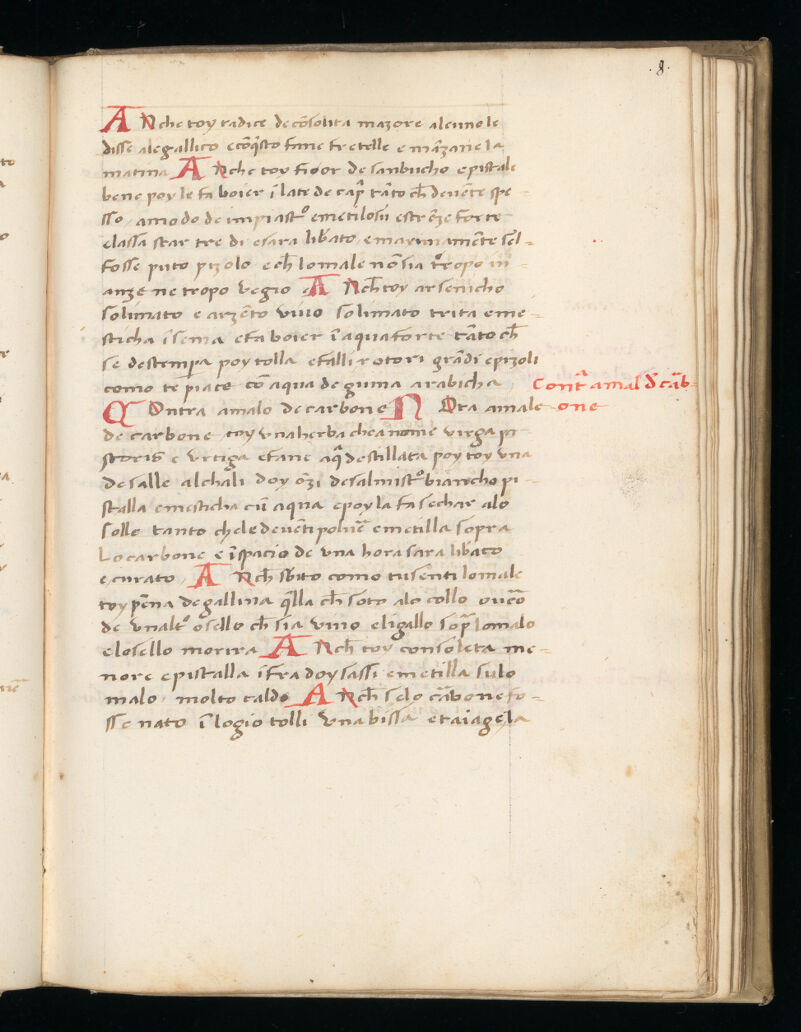 .8.
ANche toy radice de cōsolita mazore alcuno le
disse alegallico ecōq̄sto fane fretelle e mārzane la
matina ANche toy fioor de sanbucho epistale
bene poy le fa boier ī late de cap̄ tāto ch̄ devente spe-
sso, amodo de impiastr̊ emetilosu estrēze forte
elassa star tre di esara libato, emaximamēte sel-
fosse puto pizolo ech̄ lomale nō sia tropo in-
anze ne tropo vegio e ANch toy arsenicho
solimato e arzēto vivo solimato trita eme-
sticha īsema efa boier ī aqua forte tāto ch̄
se destempa poy tolla efalli rotori grādi epizoli
como te piace cō aqua de guma arabicha,
Cont̄ amal d̄ cāb-
one
COntra amalo de carbone NOta amale
de carbone toy vna herba che a nome virga pa-
storis e vrtiga efane aq̄ destillata poy toy vna
de salle alchali doy ōzi de salmistr̊ biancho pi-
stalla emesticha cū aqua epoy la fa sechar alo
solle tanto chele deventi polue emetilla sopra
Lo carbone e īspacio de vna hora sara libato
ecurato, ANch̄ sbito como tusenti lomale
toy pēna de gallina q̄lla ch̄ soto alo collo overo
de vnaltr̊ osello ch̄ sia vivo eligallo sop̄ lomalo
elosello morira ANch̄ toy consoleta me-
nore epistalla īfra doy sassi emetilla sulo
malo, molto caldo ANch̄ selo cābone fo-
sse nato ī logio tolli vna bissa etaiagela